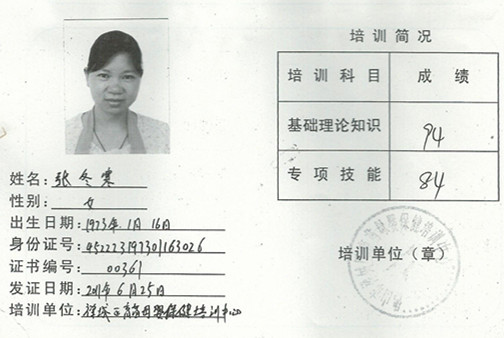 姓名:张冬寒
性别:女
出生日期:1973年1月16日
身份证号:052223197301163026
证书编号:00361
发证日期:2011年6月25日
培训单位:
培训简况
培训科目 成绩
基础理论知识 94
专项技能 84
培训单位(章)